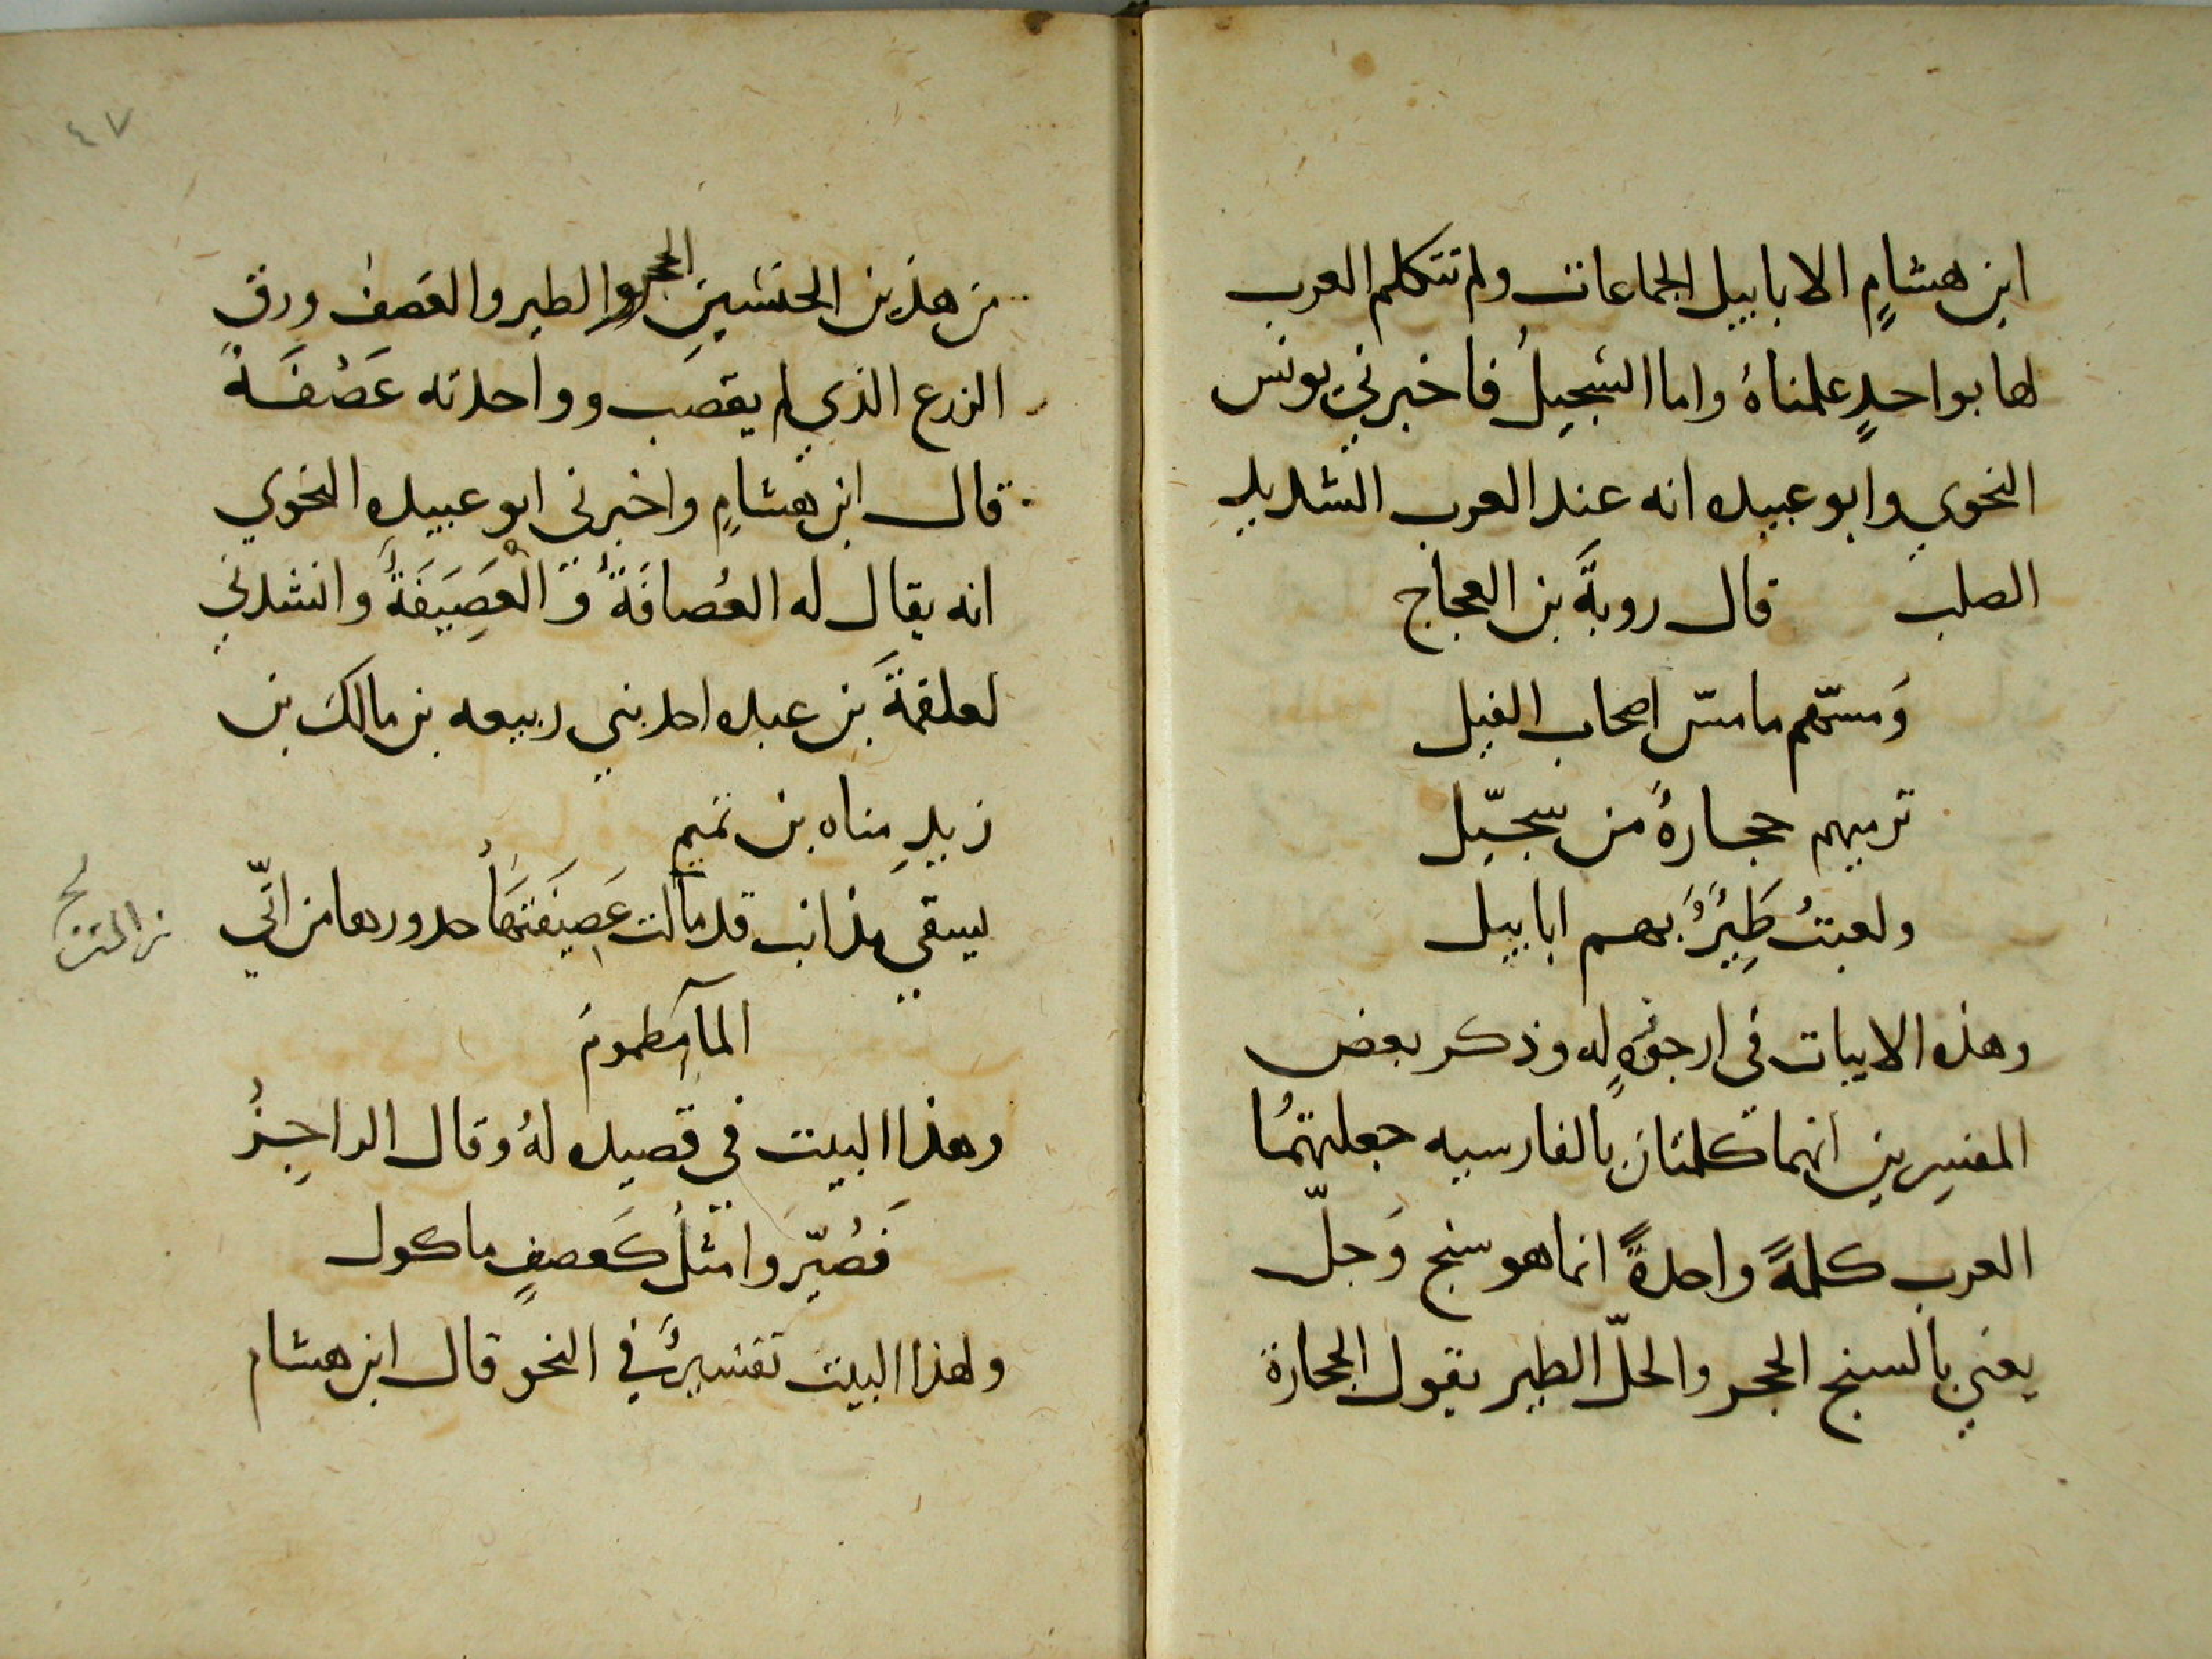 ابن هشامٍ الابابيل الجماعات ولم تتكلم العرب
لها بواحدٍ علمناهُ واما السّجيلُ فاخبرني يونس
النحوي وابو عبيده انه عند العرب الشديد
الصلب قال روبةَ بن العجاج
وَمسّهم ما مسّ اصحاب الفيل
ترميهم حجارةُ من سجّيل
ولعبتْ طَيِرُ بهم ابابيل
وهذه الابيات في ارجوزهٍ له وذكر بعض
المفسرين انهما كلمتان بالفارسيه جعلتهُما
العرب كلمةً واحدةً انما هو سنج وَجلّ
يعني بالسنج الحجر والجلّ الطير يقول الحجارة
٤٧
من هذين الجنسَينِ الحجر والطير والعَصف ورق
الزرع الذي لم يقصب وواحدته عَصْفَةُ
قال ابن هشامٍ واخبرني ابو عبيدهِ النحوي
انه يقال له العُصافَةُ وَ الْعَصِيَفَةُ وانشدني
لعلقمةَ بن عبده احد بني ربيعه بن مالك بن
زيدِ مناه بن تميم
يسقي مذانب قد مالت عَصِيَفَتهَا حدورها من اتّي
المآ مطموم
وهذا البيت في قصيده لهُ وقال الراجِزُ
فَصُيّروا مثلُ كَعصفٍ ماكول
ولهذا البيت تفسيرُ في النحو قال ابن هشام